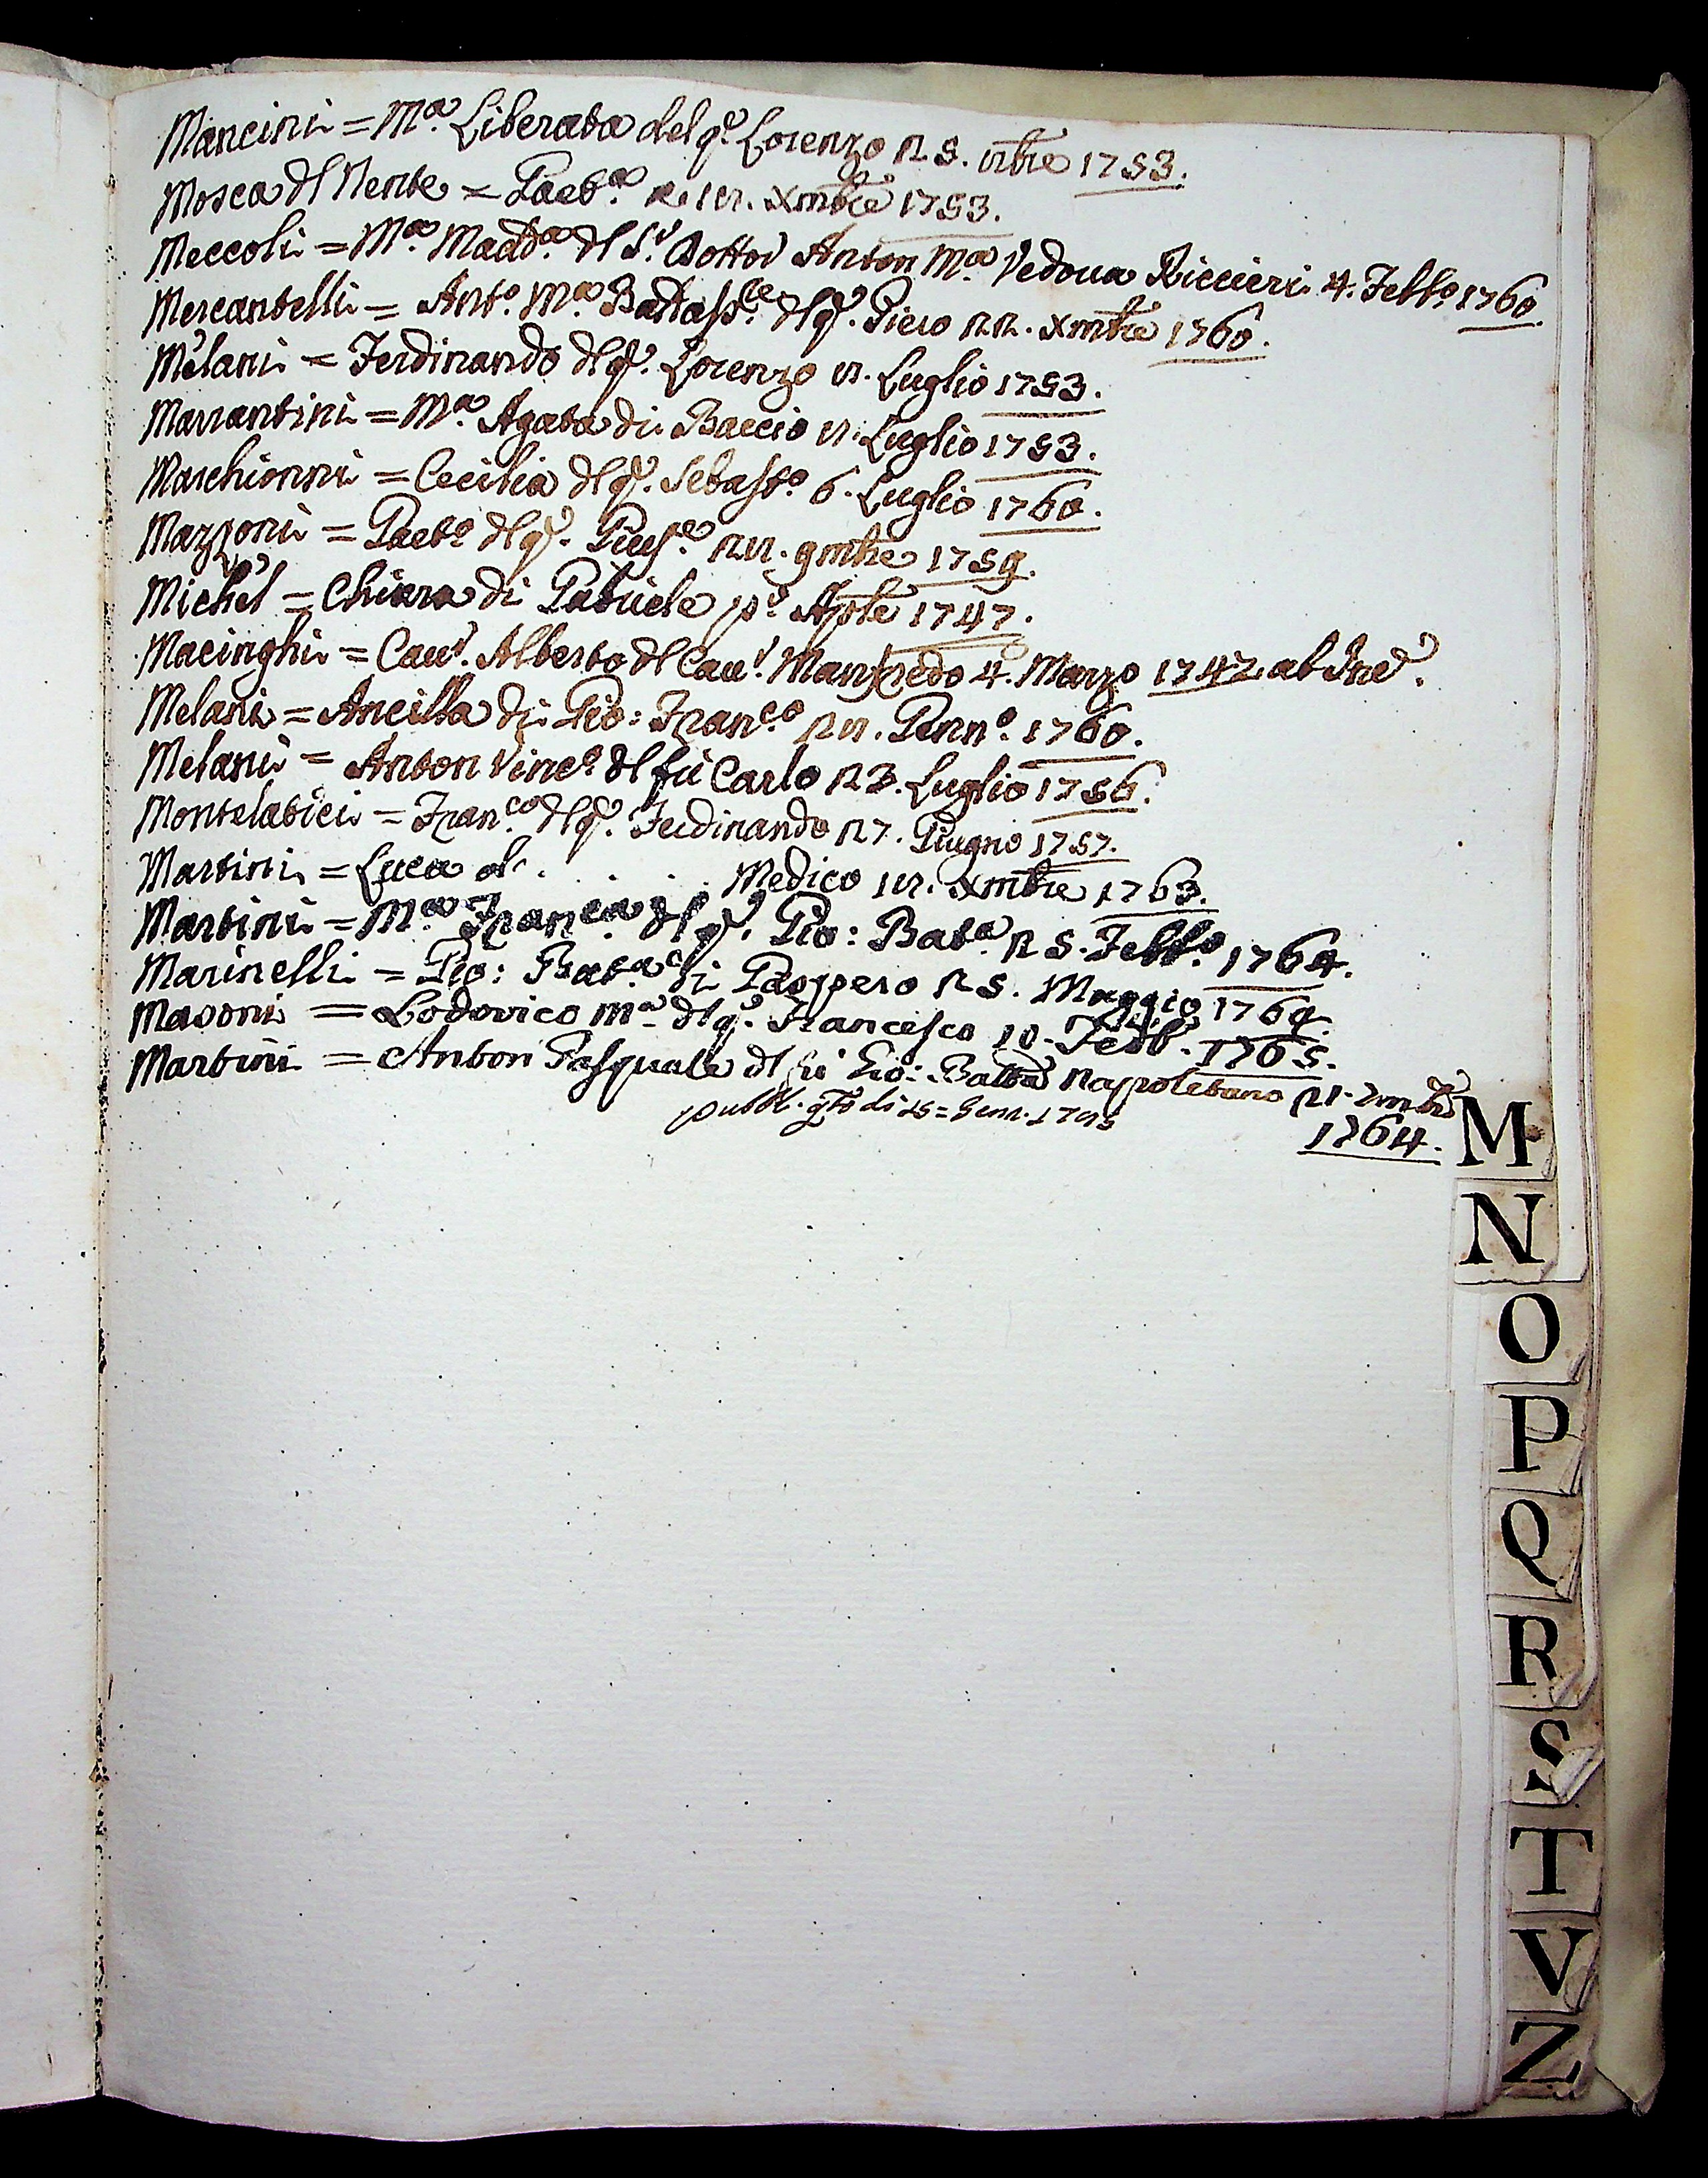 Mancini = M.ª Liberata del q.m Lorenzo 25. 7bre 1753.
Mosca del Nente = Gaet.º 17. Xmbre 1753.
Meccoli = M.ª Madd.ª dl S.r Dottor Anton M.ª Vedova Riccieri 4. Febb.º 1760.
Mercantelli = Ant.º M.ª Baldass.re dl q.m Piero 22. xmbre 1760.
Melani = Ferdinando dl q.m Lorenzo 7. Luglio 1753.
Marrantini = M.ª Agata di Baccio 7. Luglio 1753.
Marchionni = Cecilia dl q.m Sebast.º 6. Luglio 1760.
Mazzoni = Gaet.º dl q.m Gius.e 27. 9mbre 1759.
Michel = Chiara di Gabriele p.º Aple 1747.
Macinghi = Cav.r Alberto dl Cav.r Manfredo 4. Marzo 1747 ab Inc.
Melani = Ancilla di Gio: Fran.co 27. Genn.º 1760.
Melani = Anton Vinc.º dl fù Carlo 23. Luglio 1756.
Montelatici = Fran.co dl q.m Ferdinando 27. Giugno 1757.
Martini = Luca d. . . . . Medico 17. Xmbre 1763.
Martini = M.ª Fran.ca dl q.m Gio: Bat.ª 25. Febb.º 1764.
Marinelli = Gio: Bat.ª di Gasppero 25. Maggio 1769.
Masoni = Lodovico M.ª dl q.m Francesco 10. Febb. 1765.
Martini = Anton Pasquale dl fù Gio: Batta Napoletano 21. 7mbre
1764.
pubbl. q.to di 15 = Genn. 1795
M
N
O
P
Q
R
S
T
V
Z